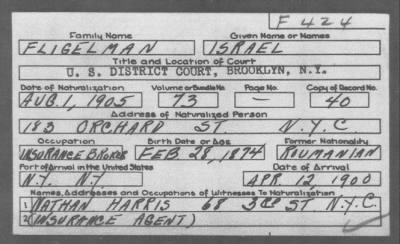 F 424
Family Name Given Name or Names
FLIGELMAN ISRAEL
Title and Location of Court
U. S. DISTRICT COURT, BROOKLYN, N.Y.
Date of Naturalization Volume or Bundle No. Page No. Copy of Record No.
AUG. 1, 1905 73 — 40
Address of Naturalized Person
183 ORCHARD ST. N.Y.C
Occupation Birth Date or Age Former Nationality
INSURANCE BROKER FEB 28, 1874 ROUMANIAN
Port of Arrival in the United States Date of Arrival
N.Y. N.Y. APR 12 1900
Names, Addresses and Occupations of Witnesses To Naturalization
1 NATHAN HARRIS 68 3RD ST N.Y.C.
2 (INSURANCE AGENT)